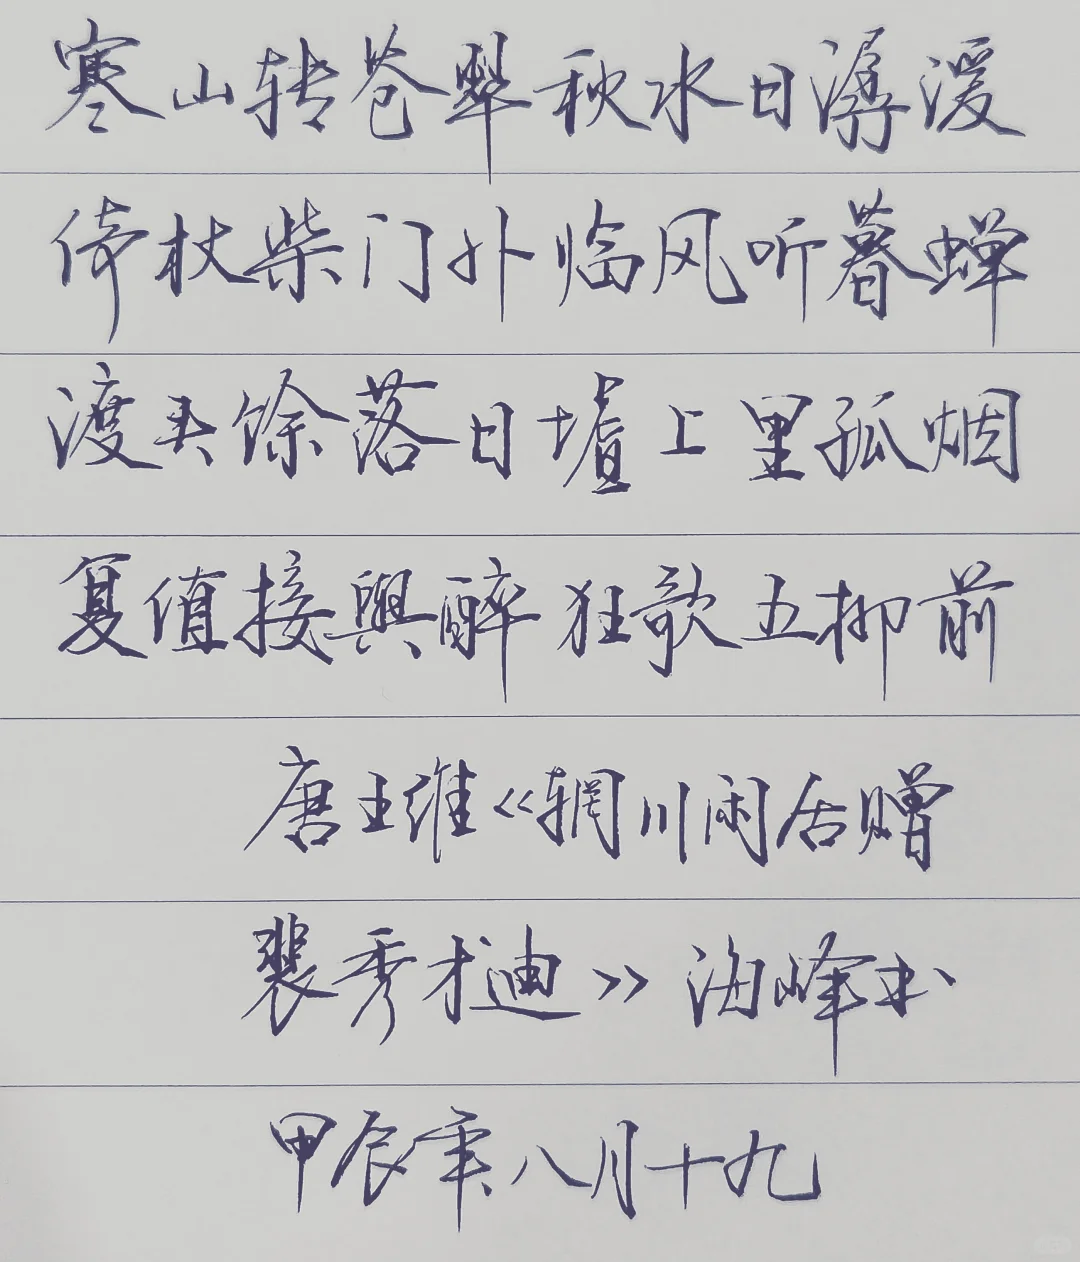 寒山转苍翠秋水日潺湲
倚杖柴门外临风听暮蝉
渡头馀落日墟上里孤烟
复值接舆醉狂歌五柳前
唐王维《辋川闲居赠
裴秀才迪》海峰书
甲辰年八月十九